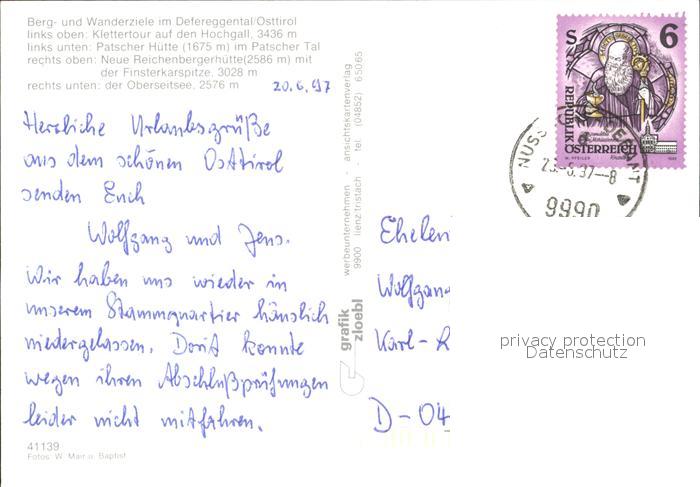 Berg- und Wanderziele im Defereggental/Osttirol
links oben: Klettertour auf den Hochgall, 3436 m
links unten: Patscher Hütte (1675 m) im Patscher Tal
rechts oben: Neue Reichenbergerhütte(2586 m) mit
der Finsterkarspitze, 3028 m
rechts unten: der Oberseitsee, 2576 m
20.6.97
Herzliche Urlaubsgrüße
aus dem schönen Osttirol
senden Euch
Wolfgang und Jens.
Wir haben uns wieder in
unserem Stammquartier häuslich
niedergelassen. Dorit konnte
wegen ihren Abschlußprüfungen
leider nicht mitfahren.
41139
Fotos: W. Mair u. Baptist
werbeunternehmen - ansichtskartenverlag
9900 lienz/tristach - tel. (04852) 65065
grafik
zloebl
S 6
REPUBLIK
ÖSTERREICH
9990
Wolfgang
Karl-R
D-04
privacy protection
Datenschutz